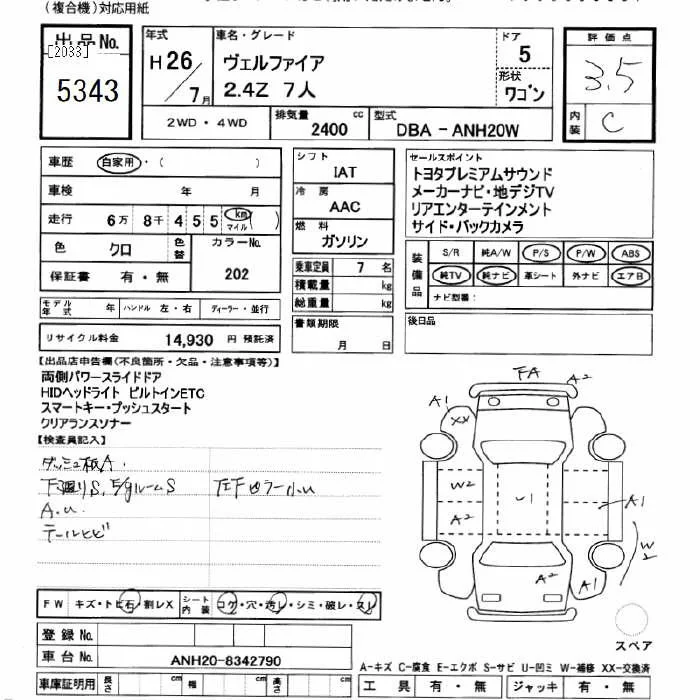 (複合機)対応用紙
出品No.
[2033]
5343
年式
H26/7月
車名・グレード
ヴェルファイア
2.4Z 7人
ドア
5
形状
ワゴン
評価点
3.5
内装
C
2WD・4WD
排気量
2400 cc
型式
DBA-ANH20W
車歴
自家用・( )
車検 年 月
走行 6万 8千 4 5 5 km マイル ( )
色 クロ
色替
カラーNo.
202
保証書 有・無
シフト
IAT
冷房
AAC
燃料
ガソリン
乗車定員 7 名
積載量 kg
総重量 kg
セールスポイント
トヨタプレミアムサウンド
メーカーナビ・地デジTV
リアエンターテインメント
サイド・バックカメラ
装備品
S/R 純A/W P/S P/W ABS
純TV 純ナビ 革シート 外ナビ エアB
ナビ型番:
モデル年式 年 ハンドル 左・右 ディーラー・並行
リサイクル料金 14,930 円 預託済
書類期限
月 日
後日品
【出品店申告欄(不良箇所・欠品・注意事項等)】
両側パワースライドドア
HIDヘッドライト ビルトインETC
スマートキー・プッシュスタート
クリアランスソナー
【検査員記入】
ダッシュ板A.
下廻りS,
A.U
FA
A2
A1
XX
W2
A2
U1
A1
W2
A2
A1
FW キズ・トビ石・割レX
シート内装 コゲ・穴・汚レ・シミ・破レ・スレ
登録No.
車台No. ANH20-8342790
車庫証明用 長さ cm 幅 cm 高さ cm
スペア
A-キズ C-腐食 E-エクボ S-サビ U-凹ミ W-補修 XX-交換済
工具 有・無 ジャッキ 有・無